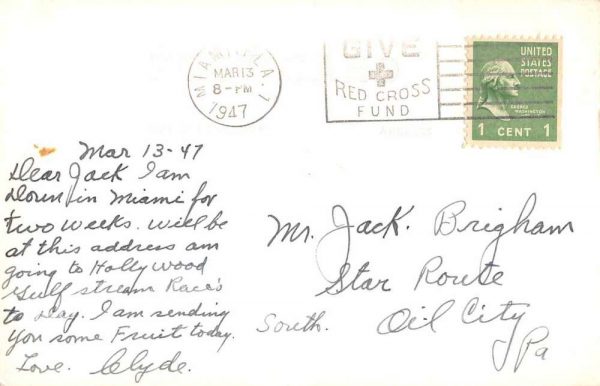 MIAMI, FLA. 1
MAR 13
8 - PM
1947
GIVE
RED CROSS
FUND
UNITED
STATES
POSTAGE
GEORGE
WASHINGTON
1 CENT 1
Mar 13-47
Dear Jack I am
Down in Miami for
two weeks. Will be
at this address am
going to Hollywood
Gulf stream Race's
to day. I am sending
You some Fruit today.
Love. Clyde.
Mr. Jack. Brigham
Star Route
South. Oil City
Pa